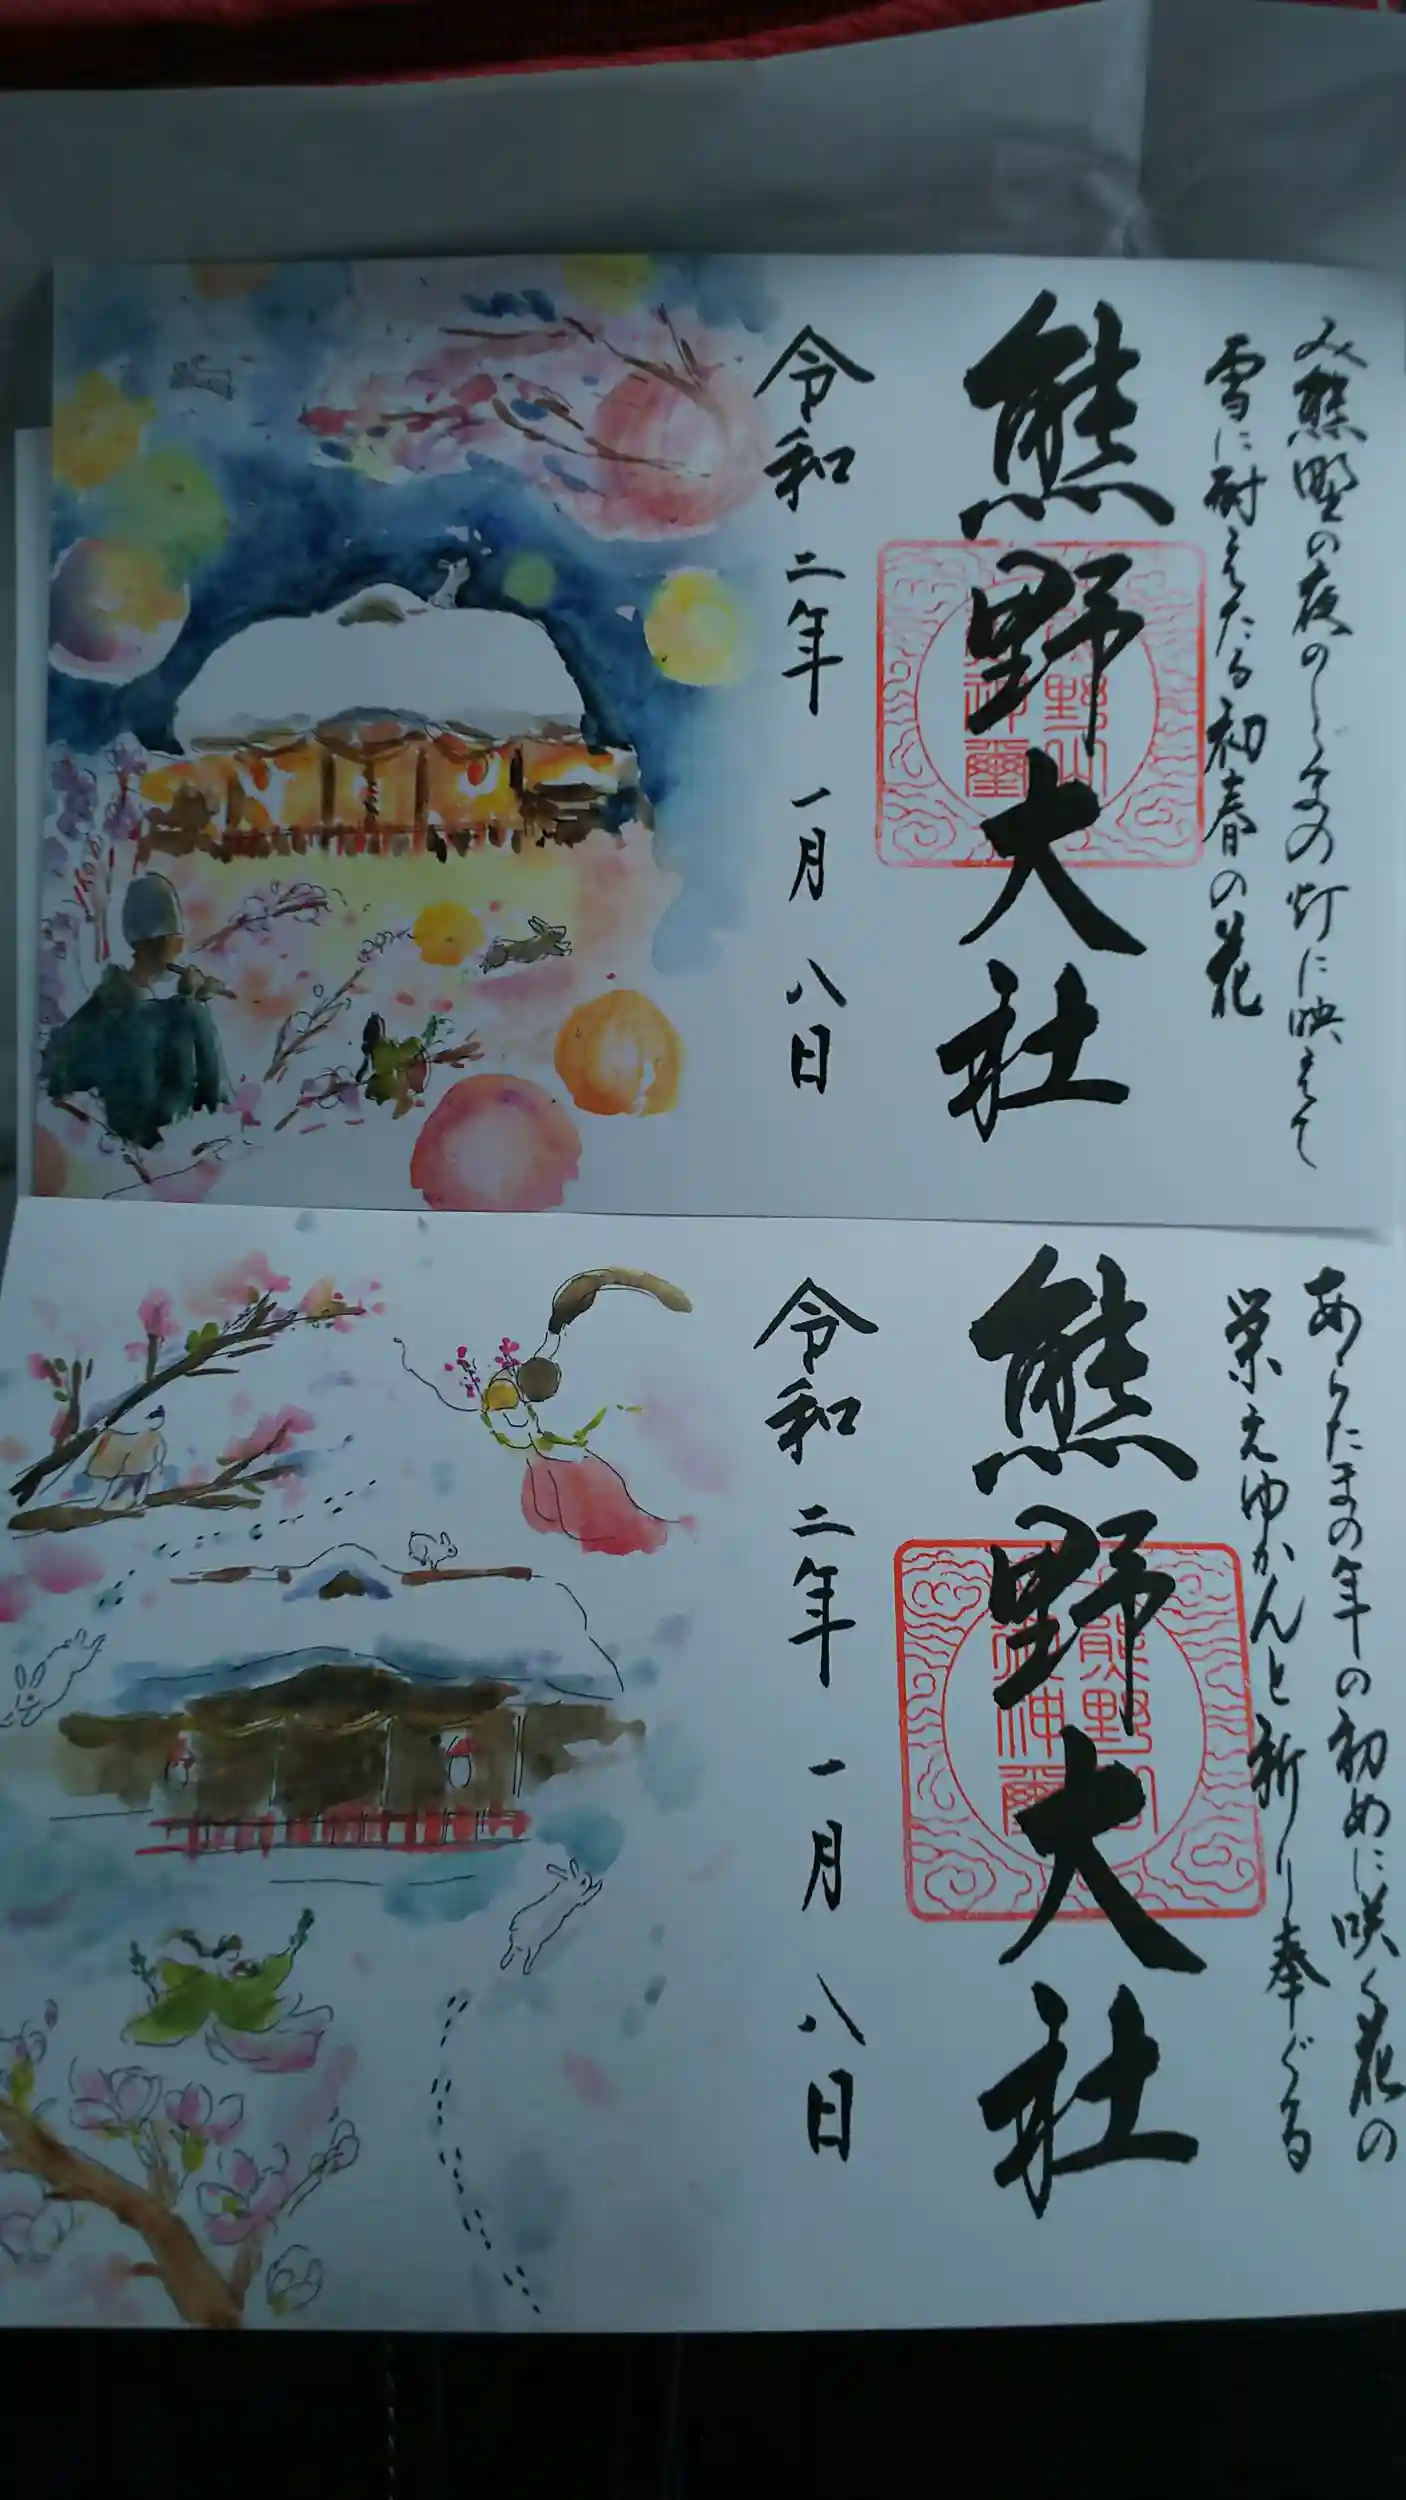 み熊野の夜のしじまの灯に映えて
雪に耐えたる初春の花
熊野大社
令和二年 一月 八日
あらたまの年の初めに咲く花の
栄えゆかんと祈り奉ぐる
熊野大社
令和二年 一月 八日